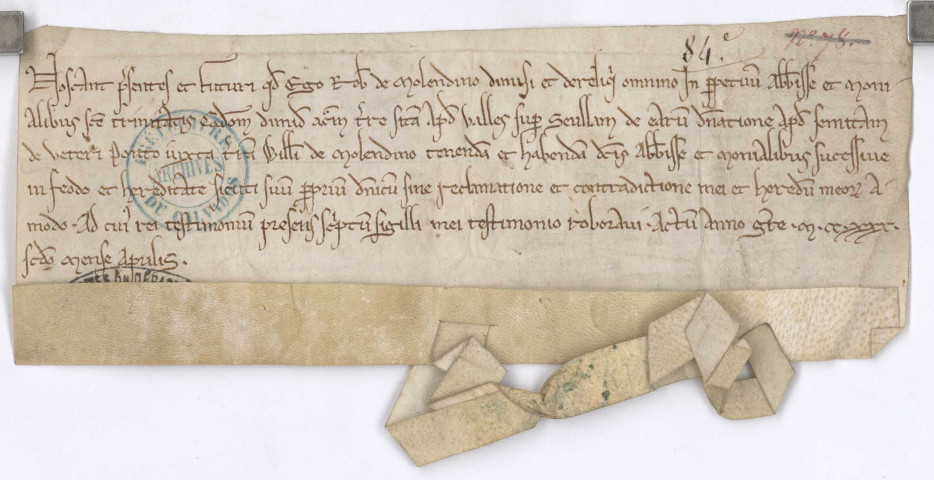 84.e
n° 78.
Noscant p̄sentes et futuri qd̄ Ego Rob̄ de Molendino dimisi et dereliq̄i omnino In ꝑpetuū Abb̄isse et Moni
alibus sc̄e trinitatis Cadom̄ dimid̄ acr̄m t̄re sitā Apd̄ Valles suꝑ Seullam de earū dn̄atione Apd̄ semitam
de veteri ponte iuxta t̄rā Will̄i de Molendino tenendā et habendā dc̄is Abb̄isse et monialibus sucessiue
in feodo et hereditate sicuti suū ꝓpriū dn̄icū sine reclamatione et contradictione mei et heredū meoꝝ A
modo . Ad cuī rei testimoniū presens sc̄ptū sigilli mei testimonio roboraui . Actū Anno gr̄e . m . cc . xxxx .
sc̄do mense Aprilis .
ARCHIVES
DU CALVADOS